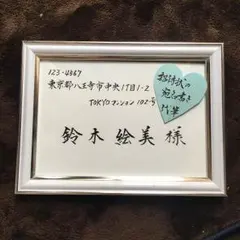 123-4567
東京都八王寺市中央1丁目1-2
TOKYOマンション102号
鈴木絵美様
招待状の
宛名書き